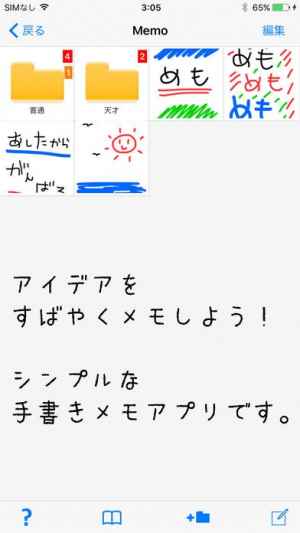 SIMなし 3:05 65%
戻る Memo 編集
4
1
2
普通 天才
めも
めも
めも
めも
あしたから
がん
ばる
アイデアを
すばやくメモしよう！
シンプルな
手書きメモアプリです。
?